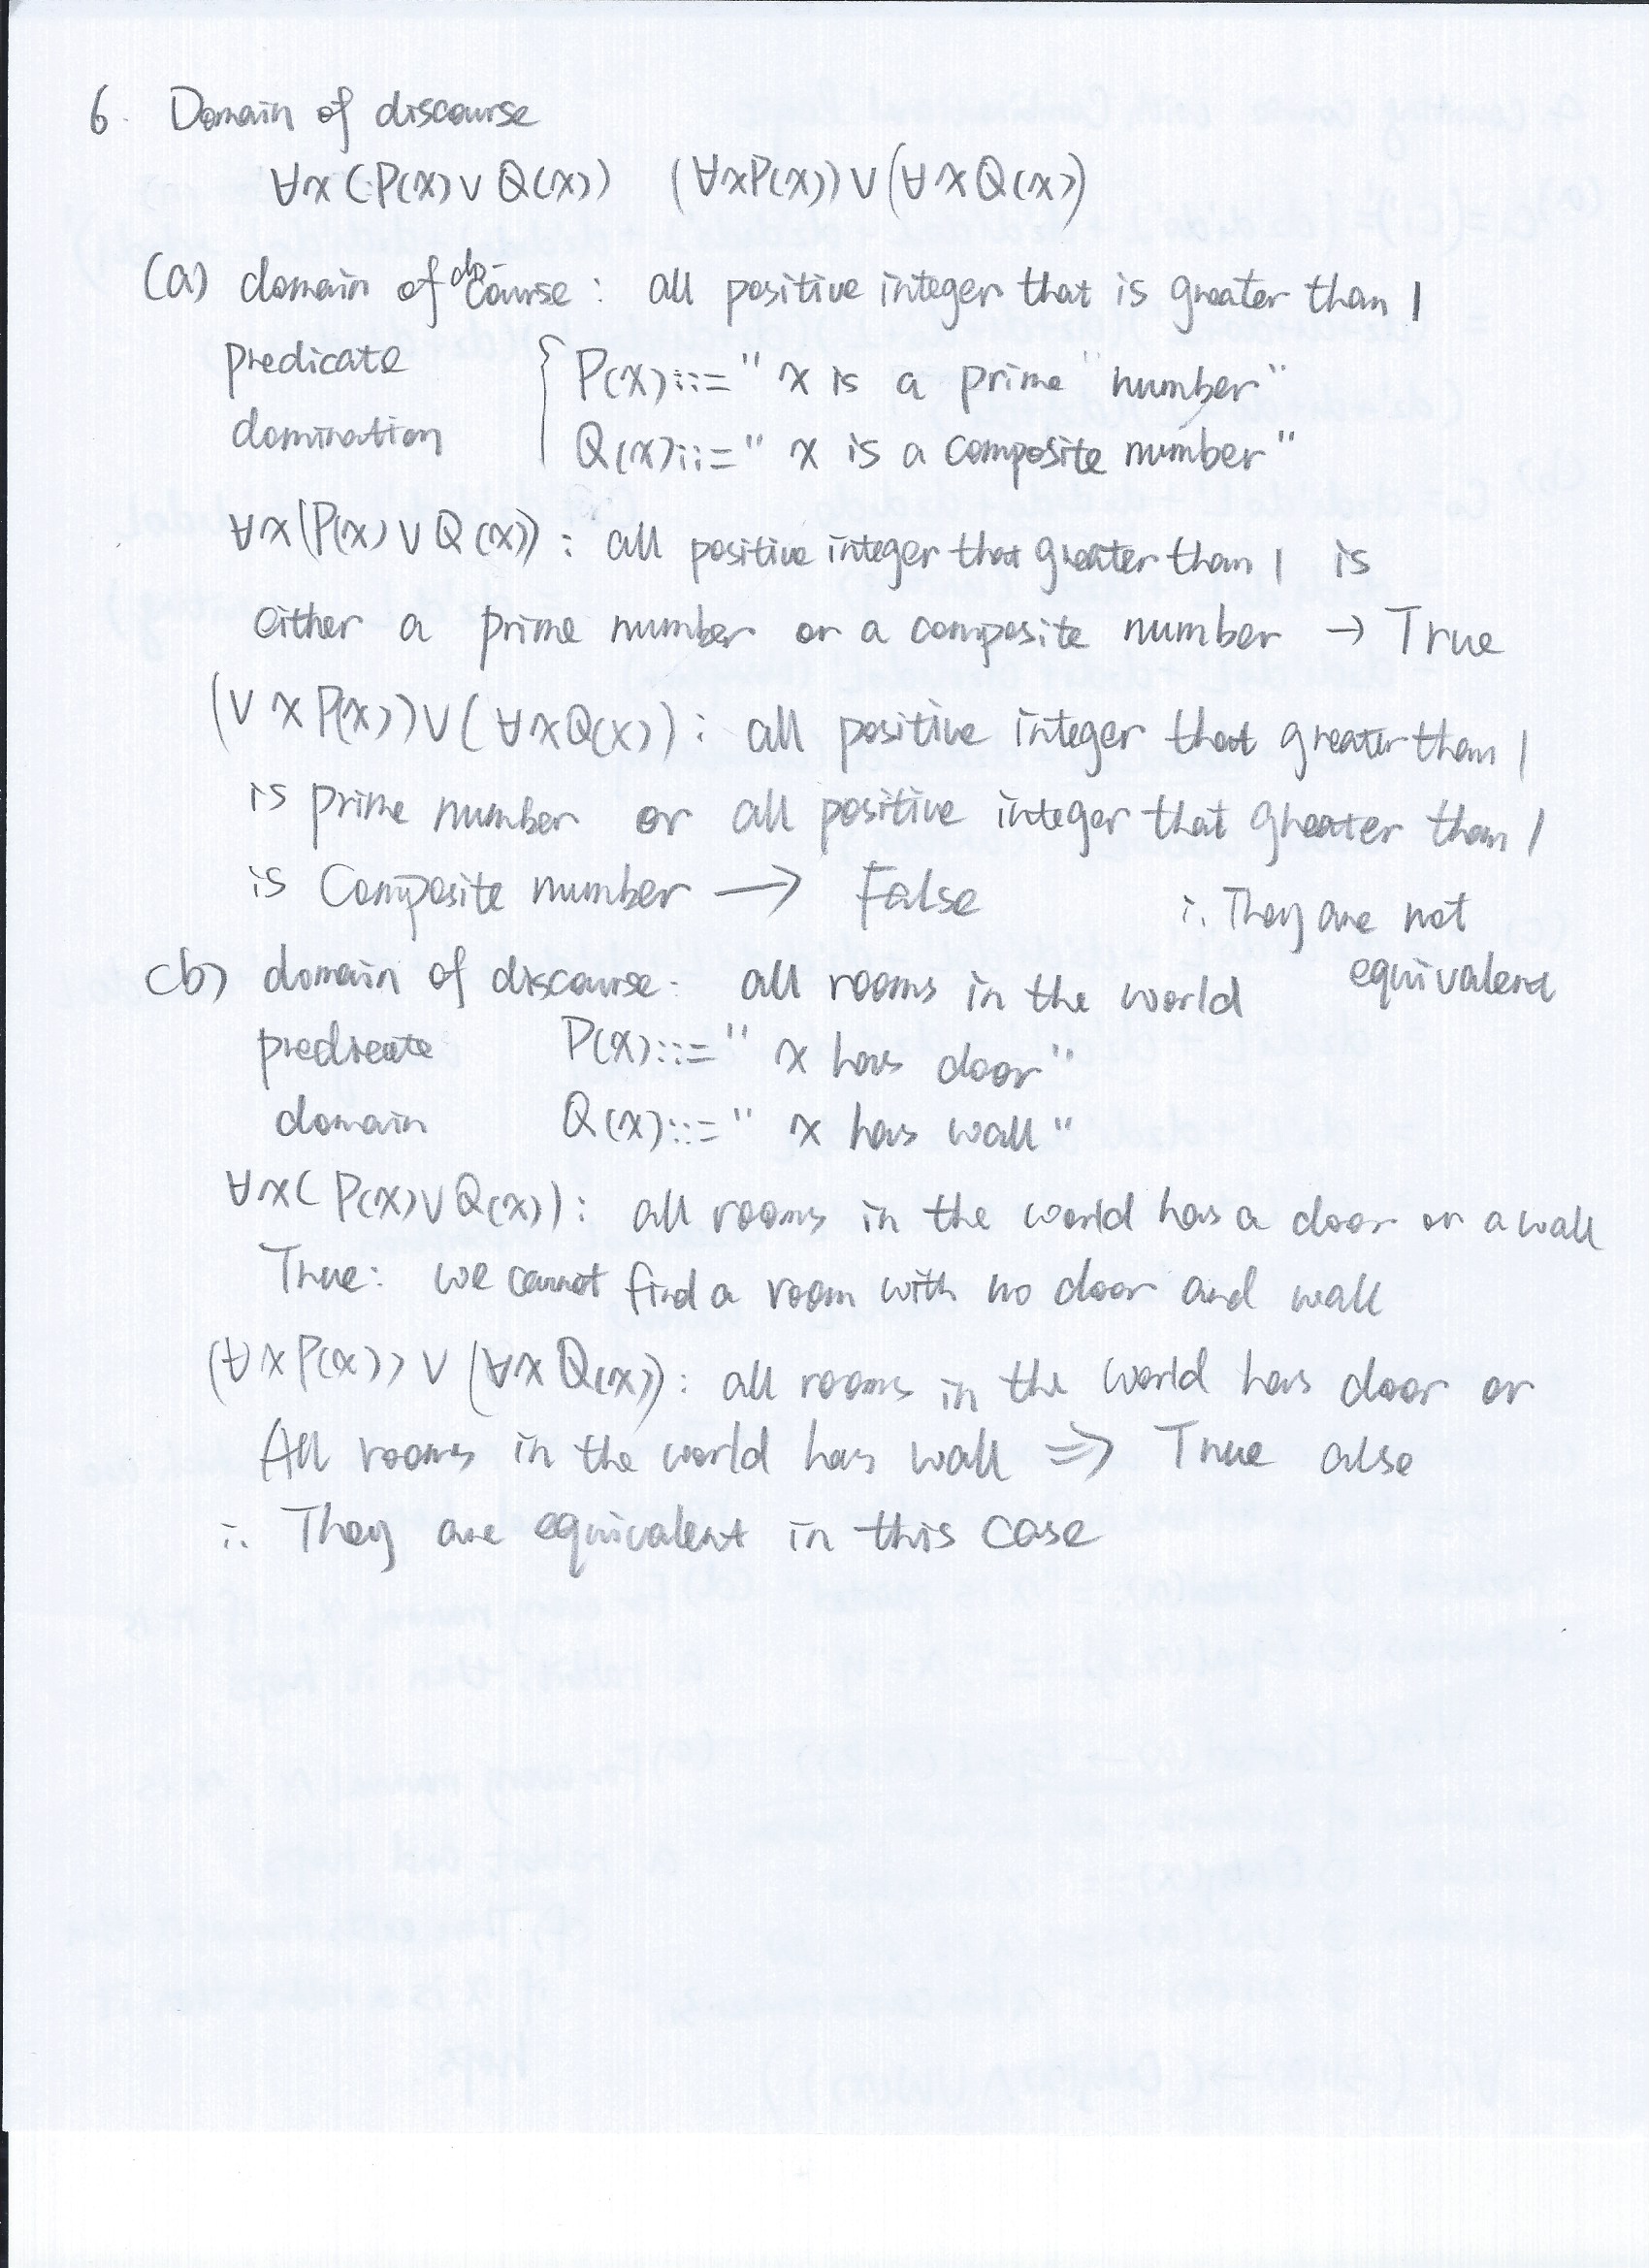 6. Domain of discourse
∀x(P(x)∨Q(x)) (∀xP(x))∨(∀xQ(x))
(a) domain of discourse: all positive integer that is greater than 1
predicate P(x)::=" x is a prime number"
domination Q(x)::=" x is a composite number"
∀x(P(x)∨Q(x)): all positive integer that greater than 1 is
either a prime number or a composite number → True
(∀xP(x))∨(∀xQ(x)): all positive integer that greater than 1
is prime number or all positive integer that greater than 1
is Composite number → False ∴ They are not
equivalent
(b) domain of discourse: all rooms in the world
predicate P(x)::=" x has door"
domain Q(x)::=" x has wall"
∀x(P(x)∨Q(x)): all rooms in the world has a door or a wall
True: we cannot find a room with no door and wall
(∀xP(x))∨(∀xQ(x)): all rooms in the world has door or
All rooms in the world has wall ⇒ True also
∴ They are equivalent in this case